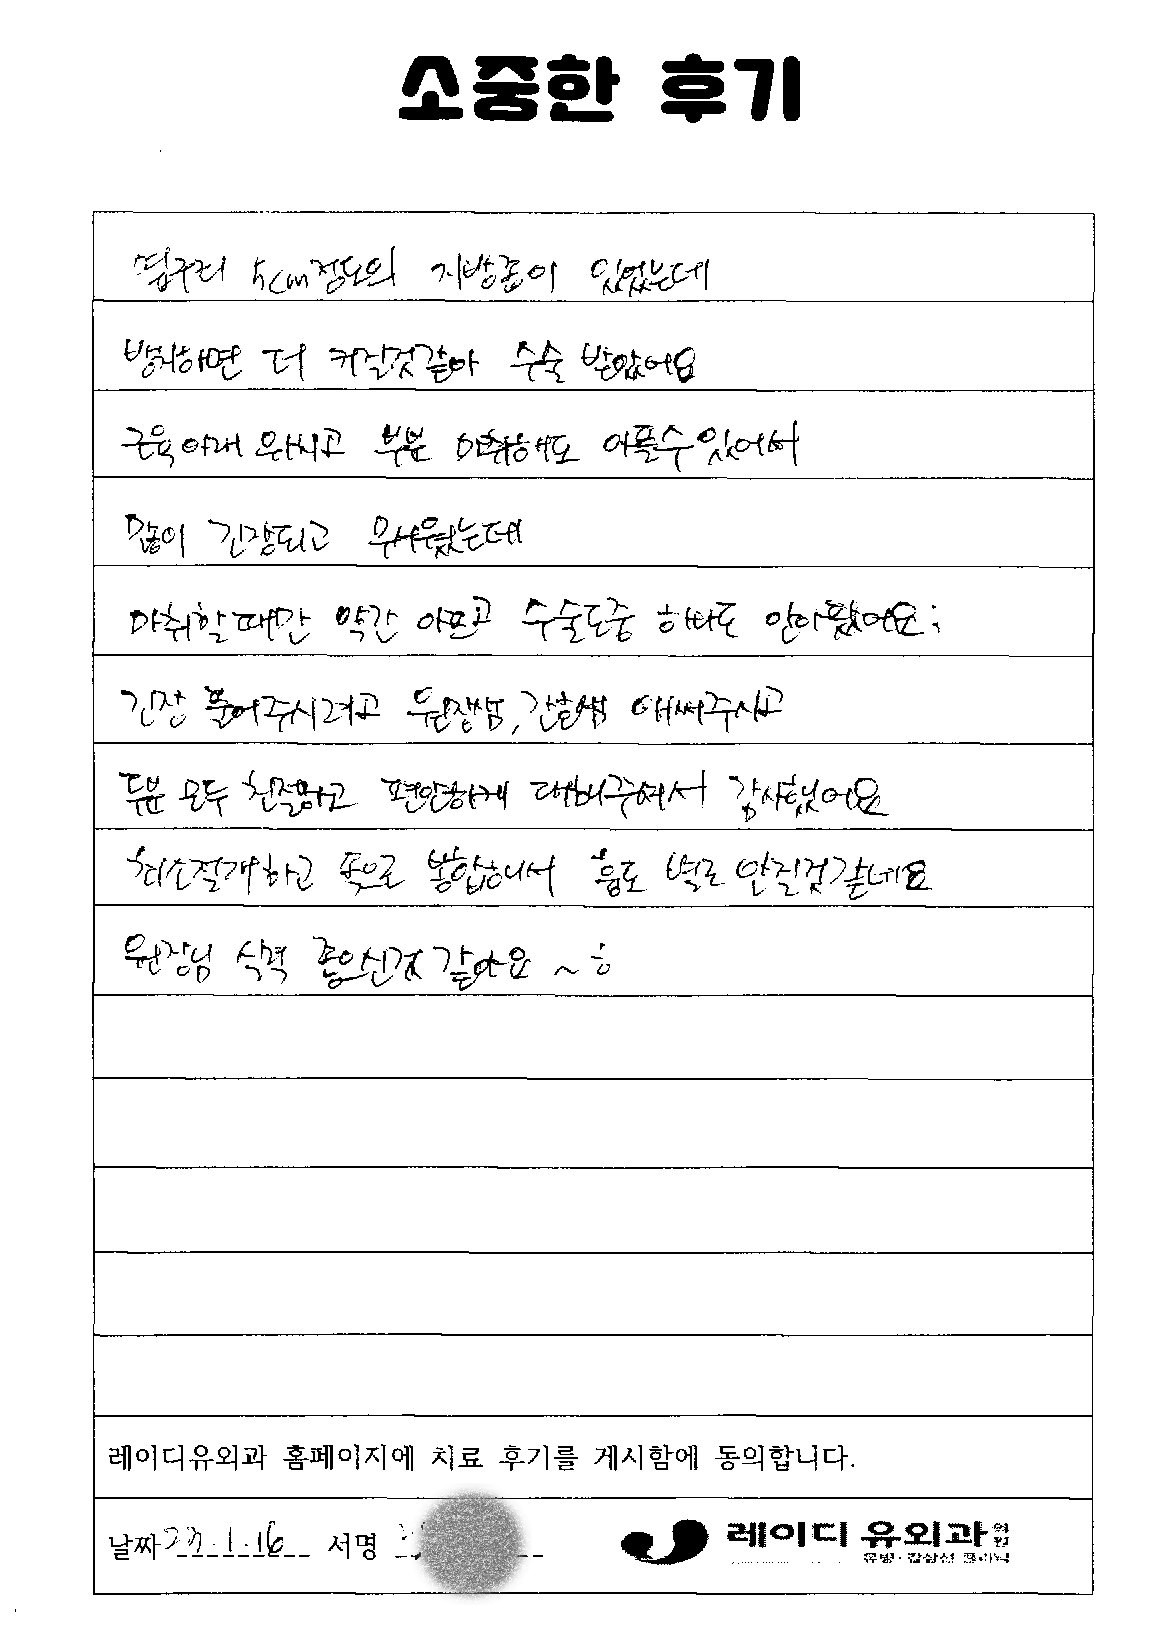 소중한 후기
옆구리 5cm정도의 지방종이 있었는데
방치하면 더 커질것같아 수술 받았어요
근육아래 위치고 부분 마취해도 아플수있어서
많이 긴장되고 무서웠는데
마취할때만 약간 아프고 수술도중 하나도 안아팠어요;
긴장 풀어주시려고 원장쌤, 간호쌤 애써주시고
두분 모두 친절하고 편안하게 대해주셔서 감사했어요
최소절개하고 속으로 봉합하니서 흉도 별로 안질것같네요
원장님 실력 좋으신것 같아요 ~ ㅎ
레이디유외과 홈페이지에 치료 후기를 게시함에 동의합니다.
날짜 1.16 서명
레이디 유외과의원
유방·갑상선 클리닉